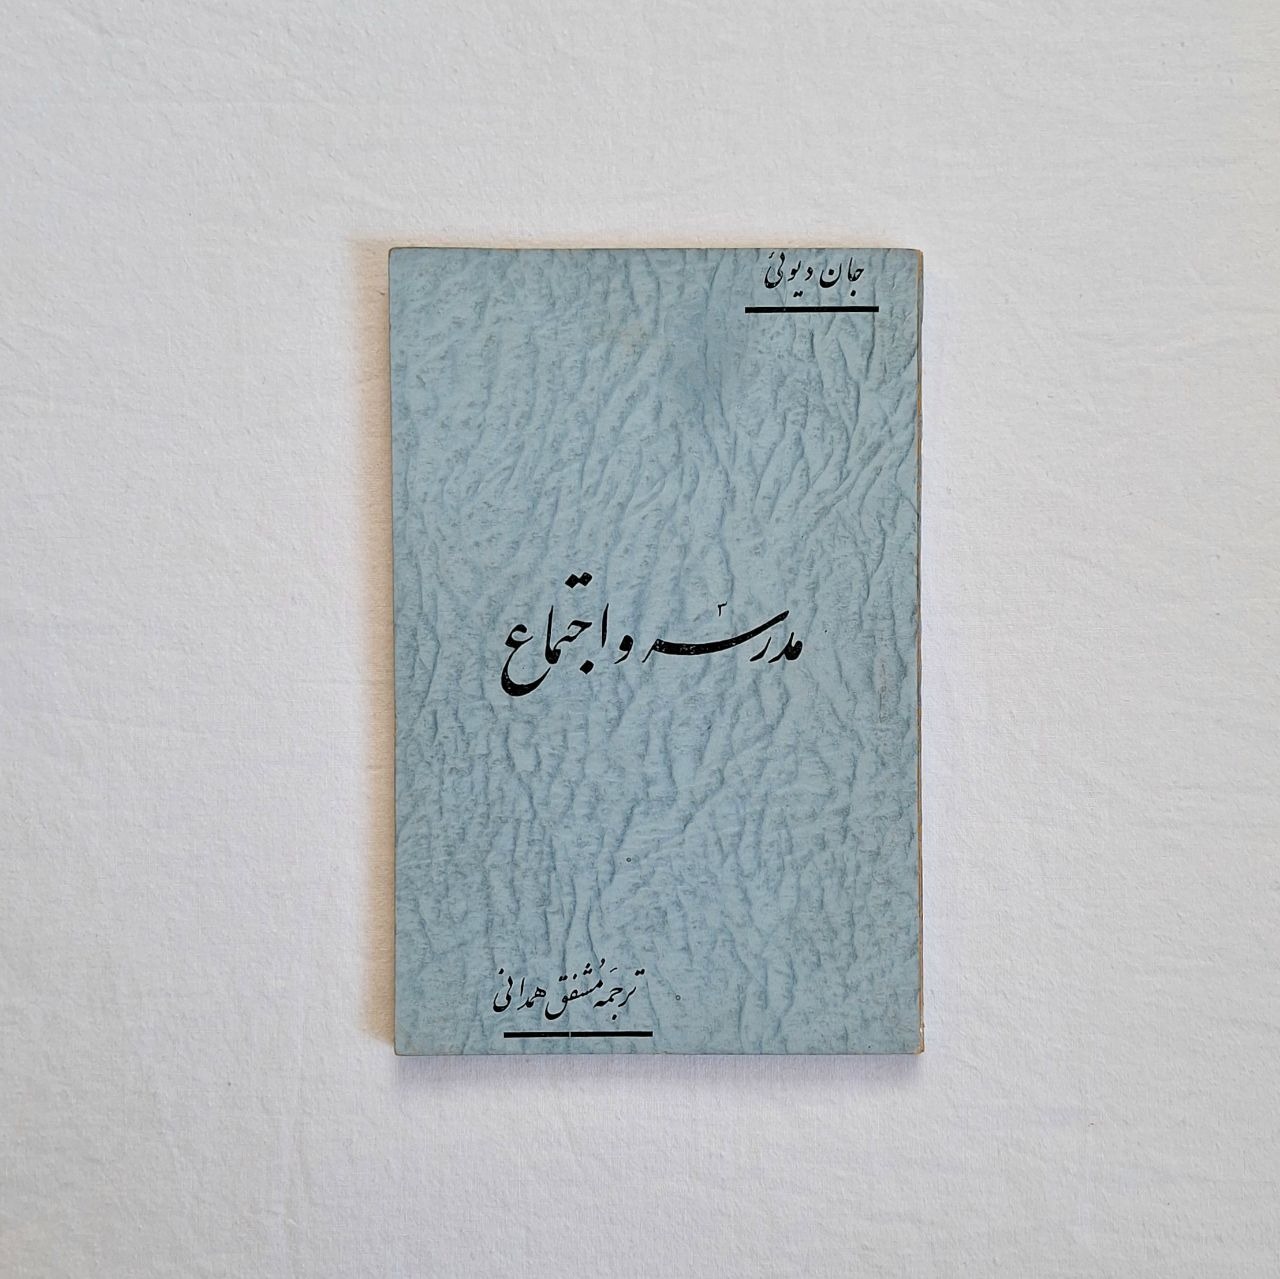 جان دیوئی
مدرسه و اجتماع
ترجمه مُشفق همدانی